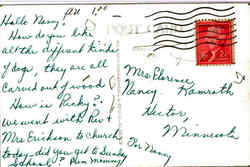 all 1.00
Hello Nancy!
How do you like
all the different kinds
of dogs, they are all
Carved out of wood
How is Ricky?
We went with Rev +
Mrs Erickson to church
today. did you get to Sunday
School?
POST CARD
Mrs Clarence
Nancy Kamrath
Hector,
Minnesota
For Nancy